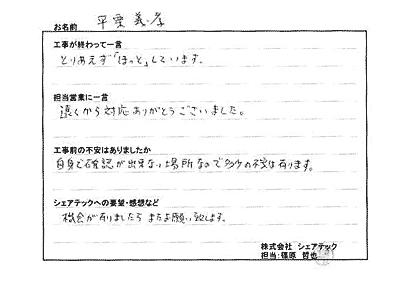 お名前 平栗 義孝
工事が終わって一言
とりあえず「ほっと」しています。
担当営業に一言
遠くから対応ありがとうございました。
工事前の不安はありましたか
自身で確認が出来ない場所なので多少の不安は有ります。
シェアテックへの要望・感想など
機会が有りましたら またお願い致します。
株式会社 シェアテック
担当:篠原 哲也